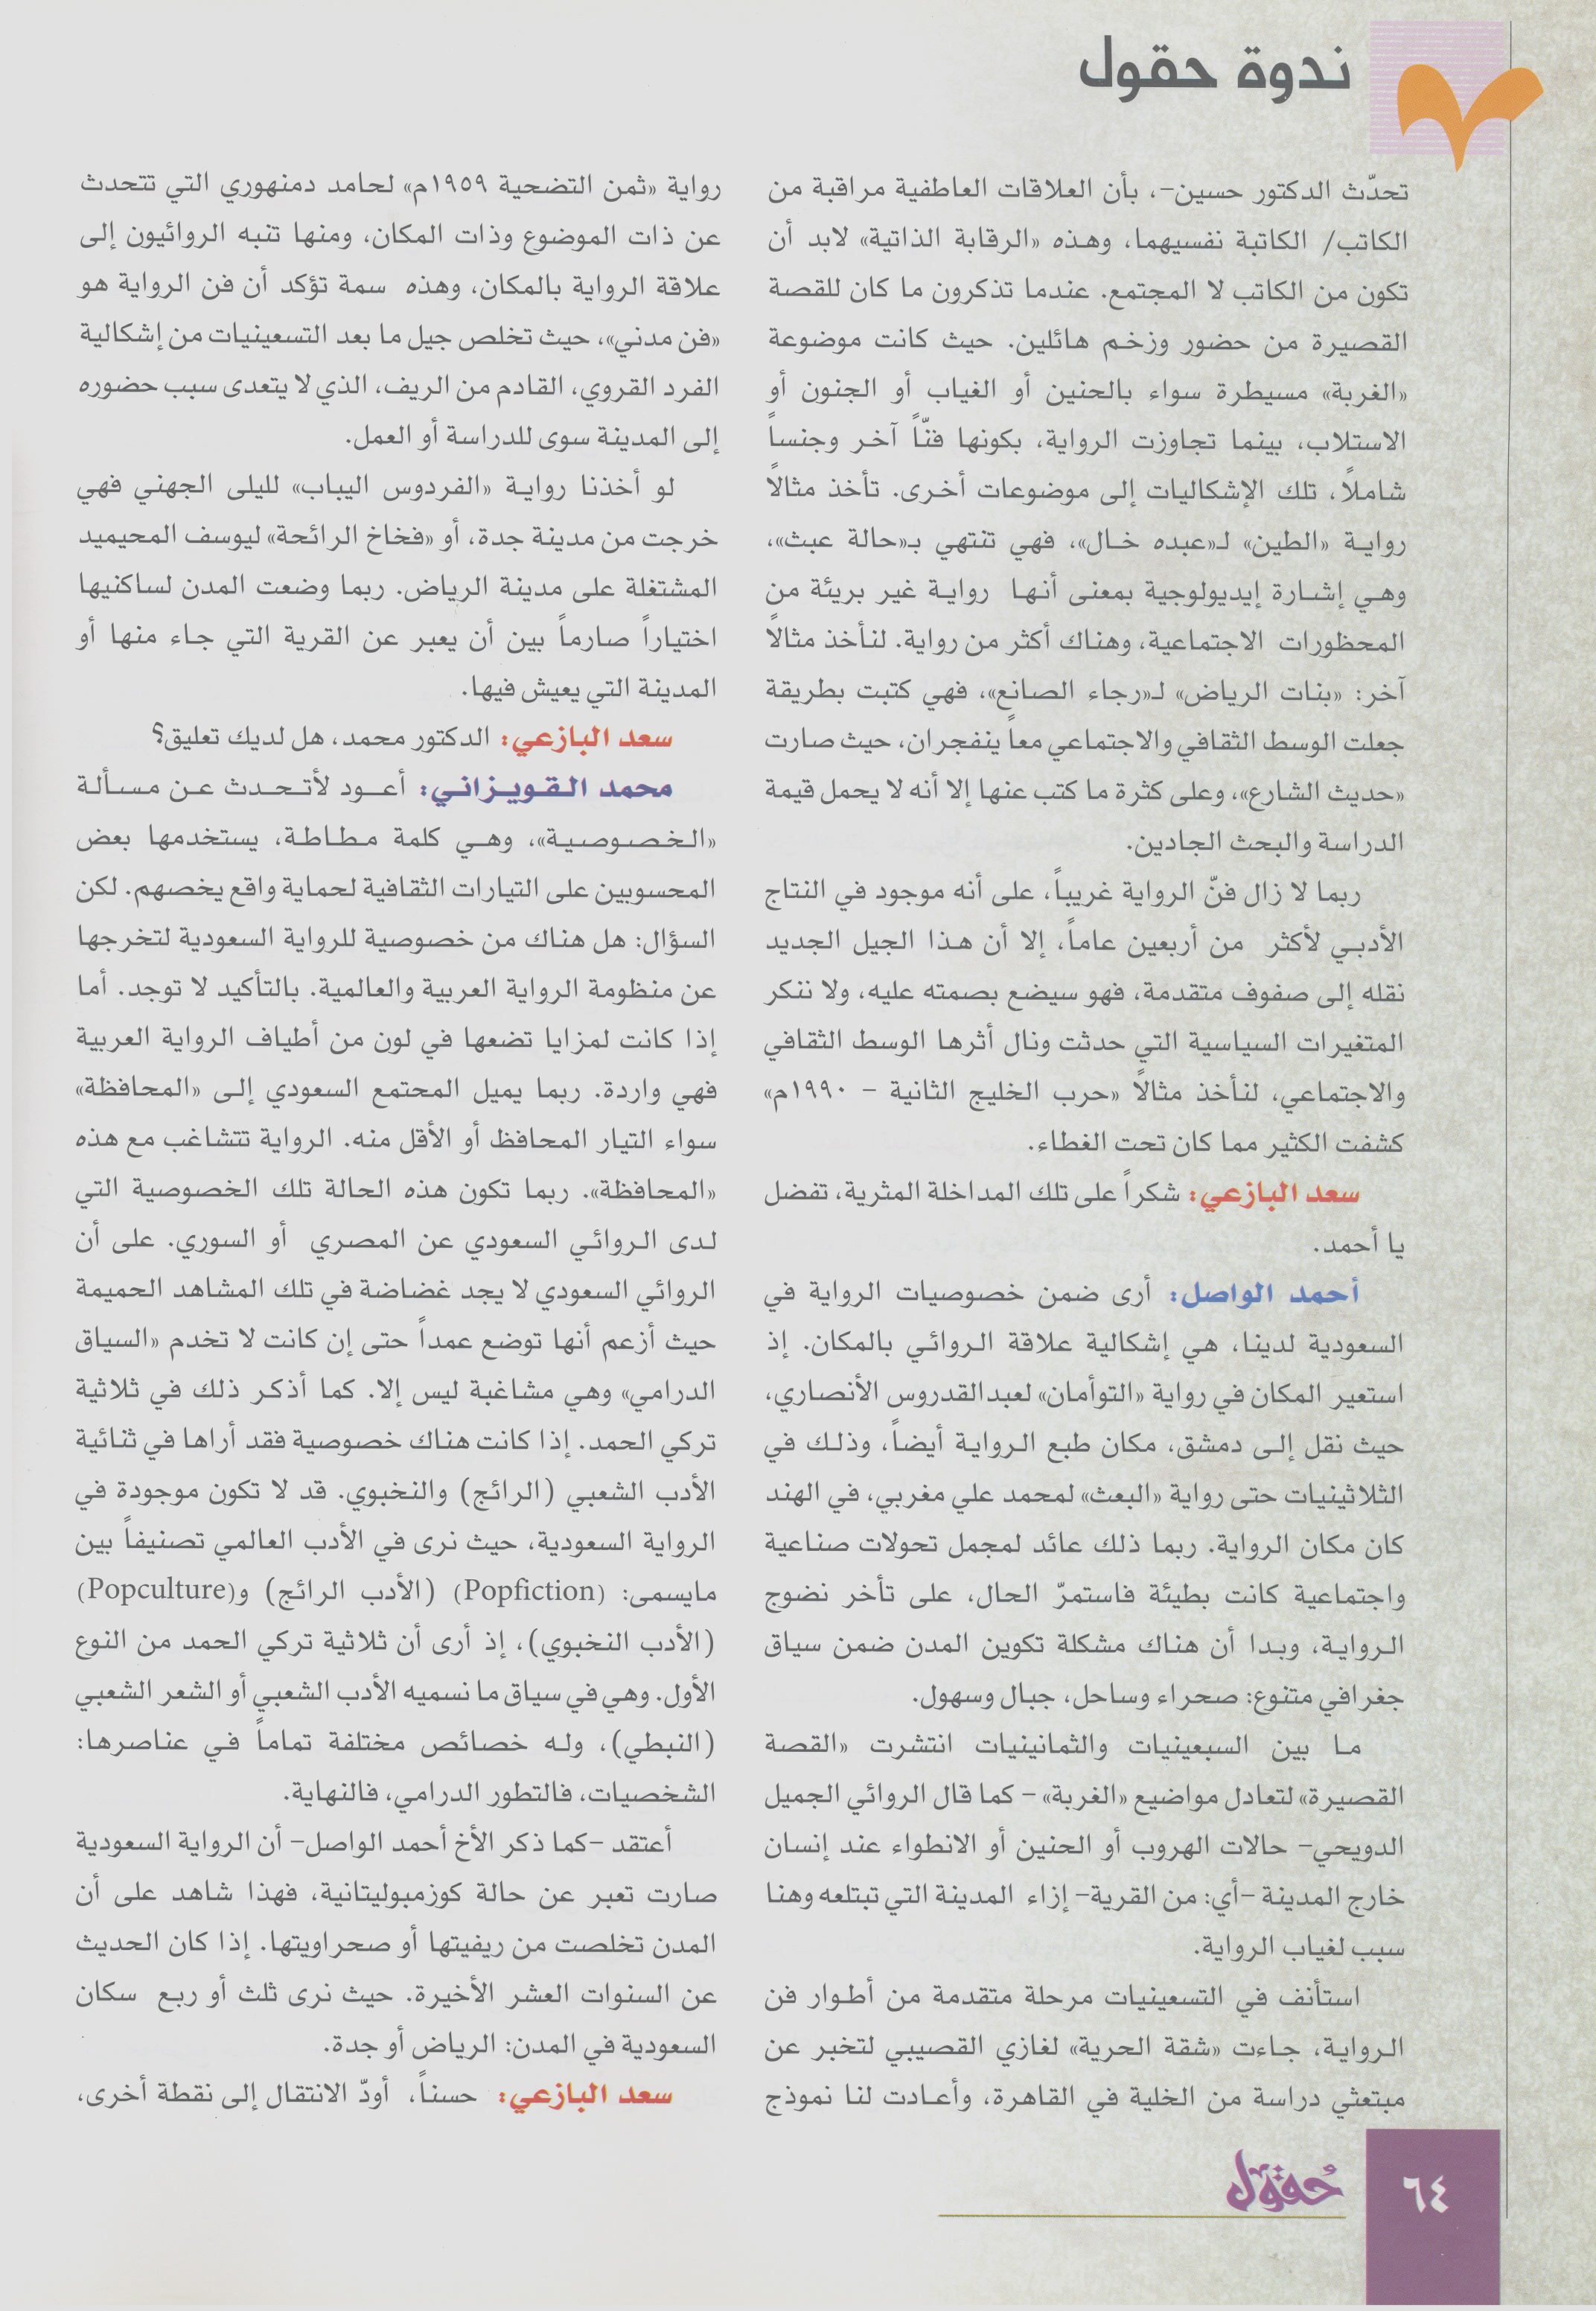 ندوة حقول
تحدّث الدكتور حسين-، بأن العلاقات العاطفية مراقبة من
الكاتب/ الكاتبة نفسيهما، وهذه «الرقابة الذاتية» لابد أن
تكون من الكاتب لا المجتمع. عندما تذكرون ما كان للقصة
القصيرة من حضور وزخم هائلين. حيث كانت موضوعة
«الغربة» مسيطرة سواء بالحنين أو الغياب أو الجنون أو
الاستلاب، بينما تجاوزت الرواية، بكونها فنّاً آخر وجنساً
شاملاً، تلك الإشكاليات إلى موضوعات أخرى. تأخذ مثالاً
رواية «الطين» لـ«عبده خال»، فهي تنتهي بـ«حالة عبث»،
وهي إشارة إيديولوجية بمعنى أنها رواية غير بريئة من
المحظورات الاجتماعية، وهناك أكثر من رواية. لنأخذ مثالاً
آخر: «بنات الرياض» لـ«رجاء الصانع»، فهي كتبت بطريقة
جعلت الوسط الثقافي والاجتماعي معاً ينفجران، حيث صارت
«حديث الشارع»، وعلى كثرة ما كتب عنها إلا أنه لا يحمل قيمة
الدراسة والبحث الجادين.
ربما لا زال فنّ الرواية غريباً، على أنه موجود في النتاج
الأدبي لأكثر من أربعين عاماً، إلا أن هذا الجيل الجديد
نقله إلى صفوف متقدمة، فهو سيضع بصمته عليه، ولا ننكر
المتغيرات السياسية التي حدثت ونال أثرها الوسط الثقافي
والاجتماعي، لنأخذ مثالاً «حرب الخليج الثانية - ١٩٩٠م»
كشفت الكثير مما كان تحت الغطاء.
سعد البازعي: شكراً على تلك المداخلة المثرية، تفضل
يا أحمد.
أحمد الواصل: أرى ضمن خصوصيات الرواية في
السعودية لدينا، هي إشكالية علاقة الروائي بالمكان. إذ
استعير المكان في رواية «التوأمان» لعبدالقدروس الأنصاري،
حيث نقل إلى دمشق، مكان طبع الرواية أيضاً، وذلك في
الثلاثينيات حتى رواية «البعث» لمحمد علي مغربي، في الهند
كان مكان الرواية. ربما ذلك عائد لمجمل تحولات صناعية
واجتماعية كانت بطيئة فاستمرّ الحال، على تأخر نضوج
الرواية، وبدا أن هناك مشكلة تكوين المدن ضمن سياق
جغرافي متنوع: صحراء وساحل، جبال وسهول.
ما بين السبعينيات والثمانينيات انتشرت «القصة
القصيرة» لتعادل مواضيع «الغربة» - كما قال الروائي الجميل
الدويحي- حالات الهروب أو الحنين أو الانطواء عند إنسان
خارج المدينة -أي: من القرية- إزاء المدينة التي تبتلعه وهنا
سبب لغياب الرواية.
استأنف في التسعينيات مرحلة متقدمة من أطوار فن
الرواية، جاءت «شقة الحرية» لغازي القصيبي لتخبر عن
مبتعثي دراسة من الخلية في القاهرة، وأعادت لنا نموذج
رواية «ثمن التضحية ١٩٥٩م» لحامد دمنهوري التي تتحدث
عن ذات الموضوع وذات المكان، ومنها تنبه الروائيون إلى
علاقة الرواية بالمكان، وهذه سمة تؤكد أن فن الرواية هو
«فن مدني»، حيث تخلص جيل ما بعد التسعينيات من إشكالية
الفرد القروي، القادم من الريف، الذي لا يتعدى سبب حضوره
إلى المدينة سوى للدراسة أو العمل.
لو أخذنا رواية «الفردوس اليباب» لليلى الجهني فهي
خرجت من مدينة جدة، أو «فخاخ الرائحة» ليوسف المحيميد
المشتغلة على مدينة الرياض. ربما وضعت المدن لساكنيها
اختياراً صارماً بين أن يعبر عن القرية التي جاء منها أو
المدينة التي يعيش فيها.
سعد البازعي: الدكتور محمد، هل لديك تعليق؟
محمد القويزاني: أعود لأتحدث عن مسألة
«الخصوصية»، وهي كلمة مطاطة، يستخدمها بعض
المحسوبين على التيارات الثقافية لحماية واقع يخصهم. لكن
السؤال: هل هناك من خصوصية للرواية السعودية لتخرجها
عن منظومة الرواية العربية والعالمية. بالتأكيد لا توجد. أما
إذا كانت لمزايا تضعها في لون من أطياف الرواية العربية
فهي واردة. ربما يميل المحتمع السعودي إلى «المحافظة»
سواء التيار المحافظ أو الأقل منه. الرواية تتشاغب مع هذه
«المحافظة». ربما تكون هذه الحالة تلك الخصوصية التي
لدى الروائي السعودي عن المصري أو السوري. على أن
الروائي السعودي لا يجد غضاضة في تلك المشاهد الحميمة
حيث أزعم أنها توضع عمداً حتى إن كانت لا تخدم «السياق
الدرامي» وهي مشاغبة ليس إلا. كما أذكر ذلك في ثلاثية
تركي الحمد. إذا كانت هناك خصوصية فقد أراها في ثنائية
الأدب الشعبي (الرائج) والنخبوي. قد لا تكون موجودة في
الرواية السعودية، حيث نرى في الأدب العالمي تصنيفاً بين
مايسمى: (Popfiction) (الأدب الرائج) و(Popculture)
(الأدب النخبوي)، إذ أرى أن ثلاثية تركي الحمد من النوع
الأول. وهي في سياق ما نسميه الأدب الشعبي أو الشعر الشعبي
(النبطي)، وله خصائص مختلفة تماماً في عناصرها:
الشخصيات، فالتطور الدرامي، فالنهاية.
أعتقد -كما ذكر الأخ أحمد الواصل- أن الرواية السعودية
صارت تعبر عن حالة كوزمبوليتانية، فهذا شاهد على أن
المدن تخلصت من ريفيتها أو صحراويتها. إذا كان الحديث
عن السنوات العشر الأخيرة. حيث نرى ثلث أو ربع سكان
السعودية في المدن: الرياض أو جدة.
سعد البازعي: حسناً، أودّ الانتقال إلى نقطة أخرى،
حُقول
٦٤